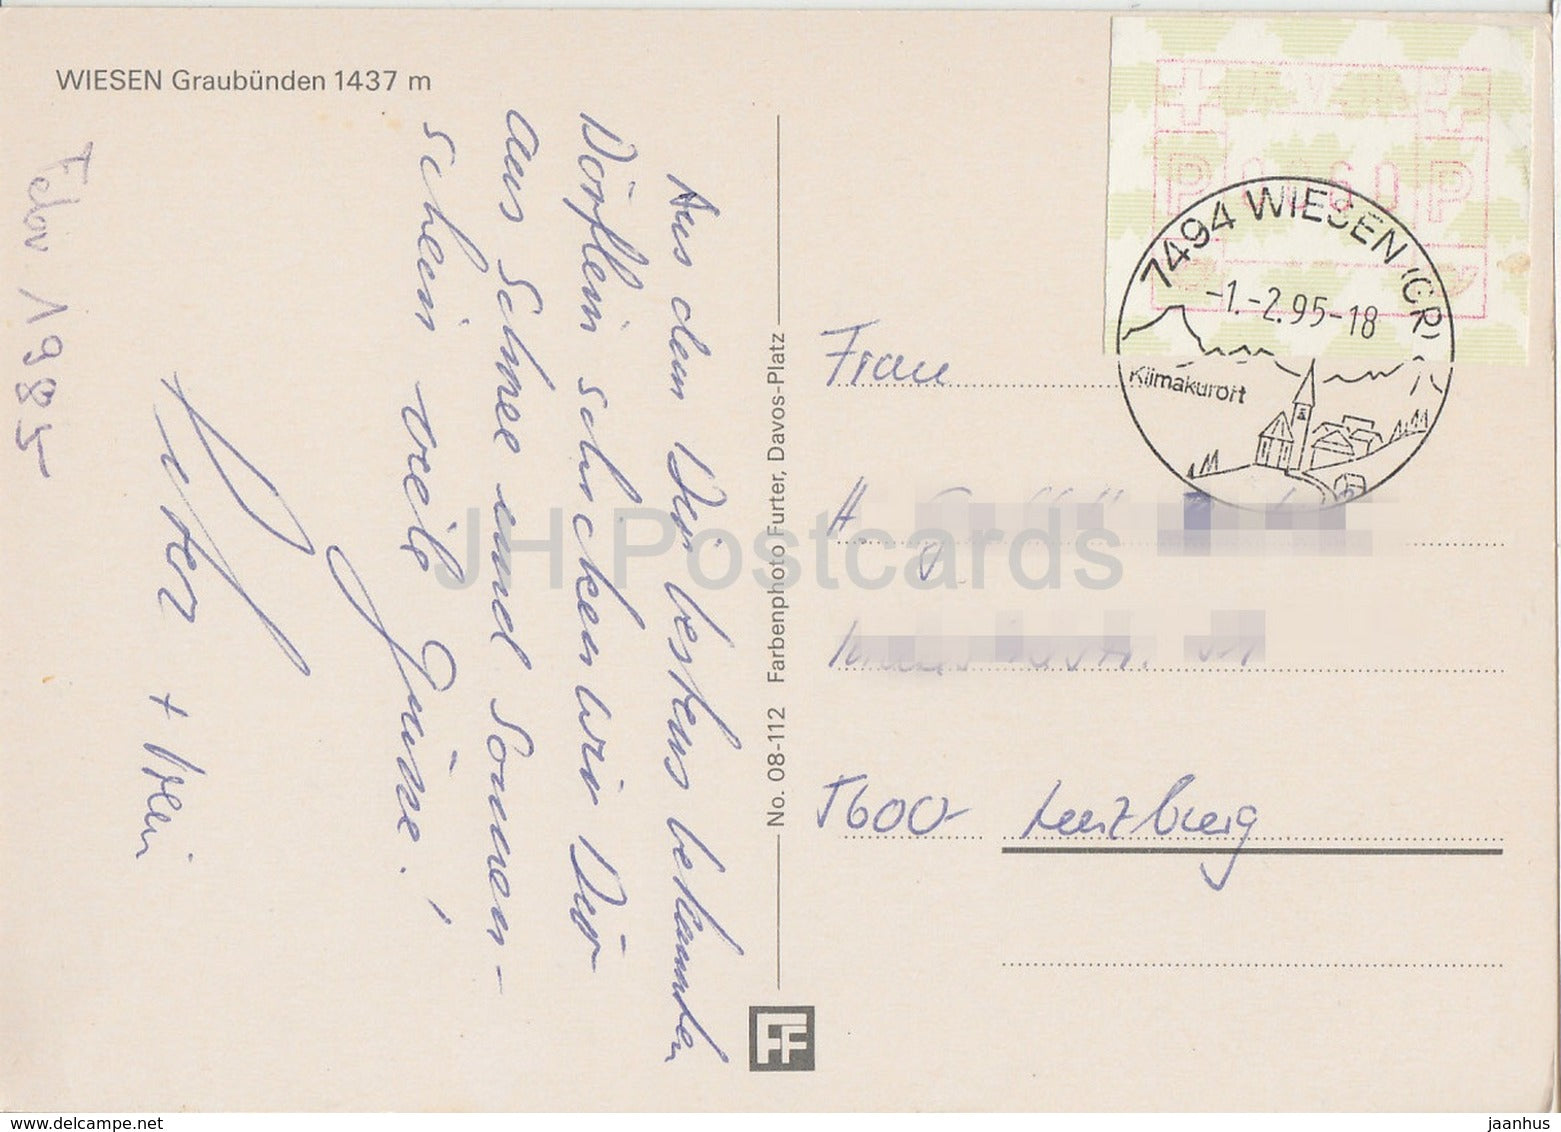 WIESEN Graubünden 1437 m
Aus dem Dir bestens bekannten
Dörflein schicken wir Dir
aus Schnee und Sonnen-
schein viele Grüsse!
Peter + Vreni
Febr 1985
No. 08-112 Farbenphoto Furter, Davos-Platz
FF
P P
7494 WIESEN (GR)
-1.-2.95-18
Klimakurort
Frau
5600- Lenzburg
JH Postcards
www.delcampe.net
jaanhus